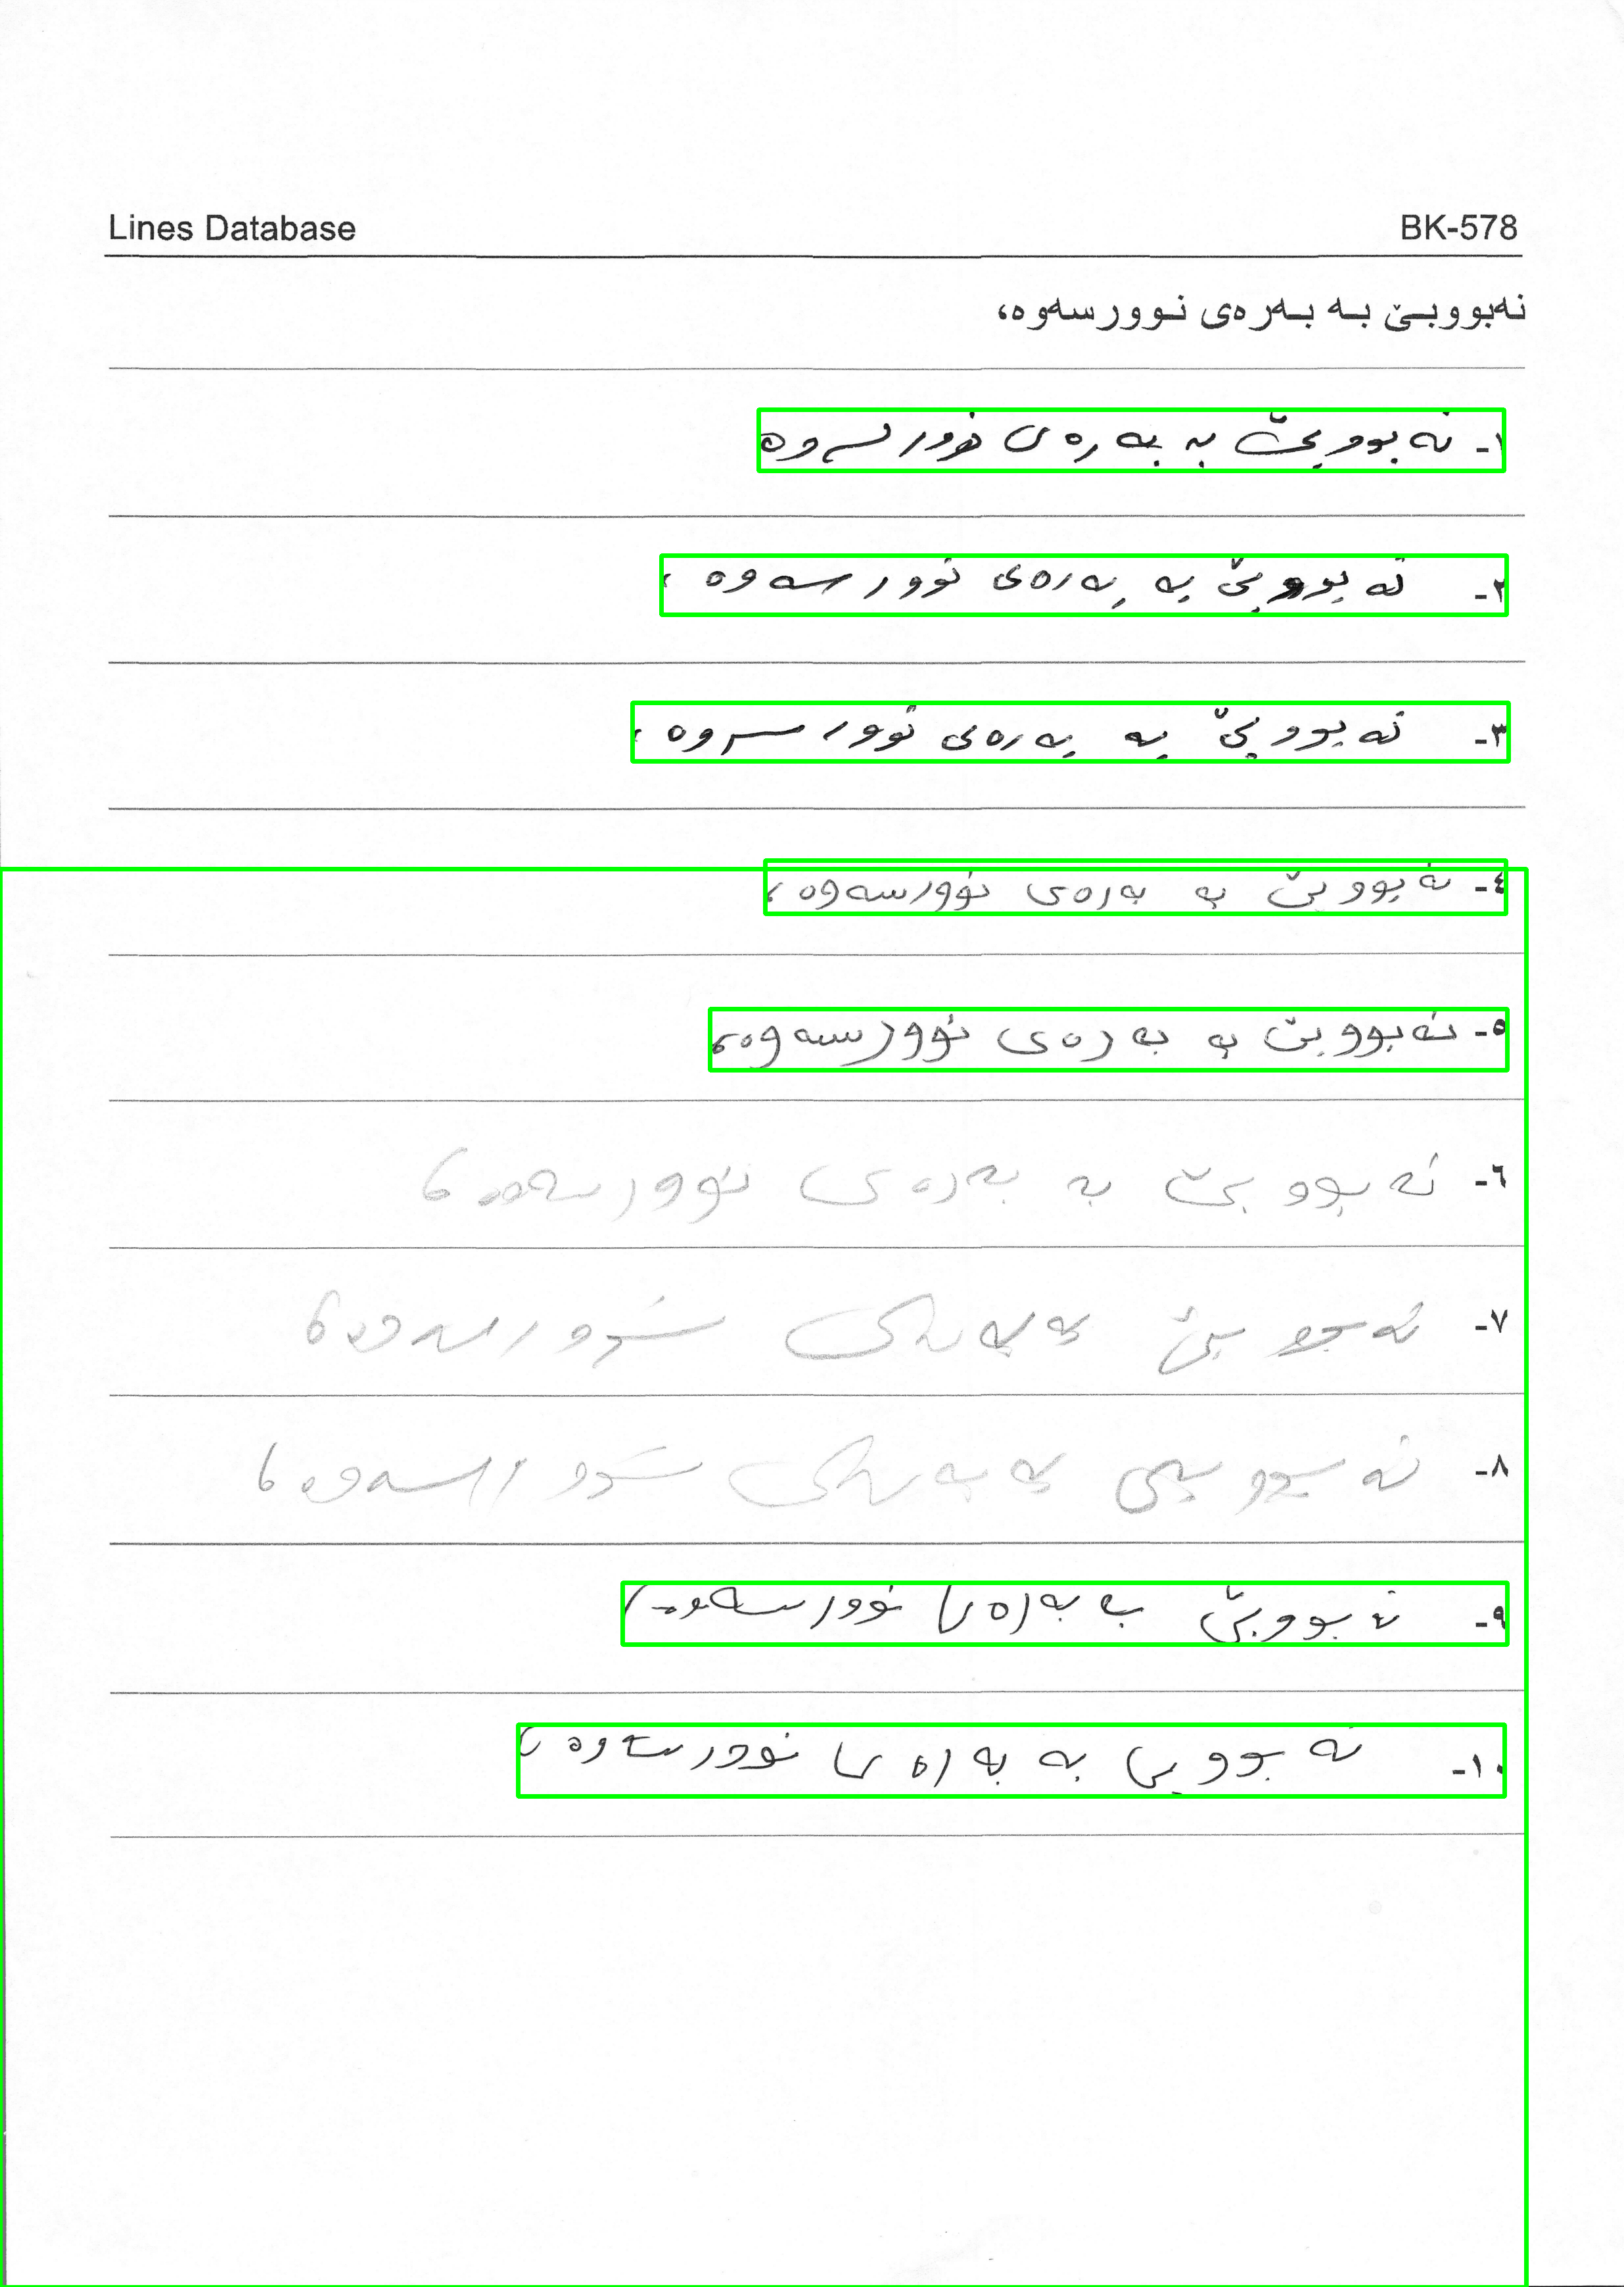 Lines Database BK-578
نەبووبێ بە بەرەی نوورسەوە،
١- نەبووبێ بە بەرەی نوورسەوە
٢- نەبووبێ بە بەرەی نوورسەوە ،
٣- نەبووبێ بە بەرەی نوورسەوە ،
٤- نەبووبێ بە بەرەی نوورسەوە ،
٥- نەبووبێ بە بەرەی نوورسەوە،
٦- نەبووبێ بە بەرەی نوورسەوە،
٧- نەبووبێ بە بەرەی نوورسەوە،
٨- نەبووبێ بە بەرەی نوورسەوە،
٩- نەبووبێ بە بەرەی نوورسەوە،
١٠- نەبووبێ بە بەرەی نوورسەوە،